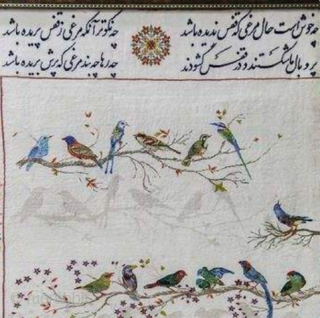 چه خوش است حال مرغی که قفس ندیده باشد چه نکوتر آنکه مرغی ز قفس پریده باشد
پر و بال ما شکستند و در قفس گشودند چه رها چه بند مرغی که پرش بریده باشد